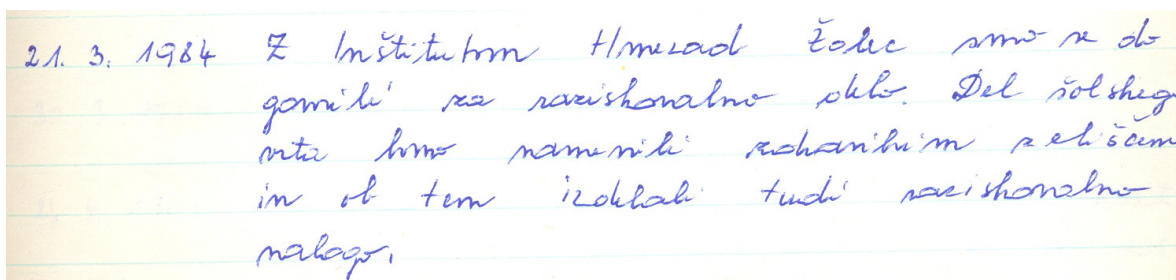 21. 3. 1984 Z Inštitutom Hmezad Žalec smo se do
govorili za raziskovalno delo. Del šolskega
vrta bomo namenili zdravilnim zeliščem
in ob tem izdelali tudi raziskovalno
nalogo.